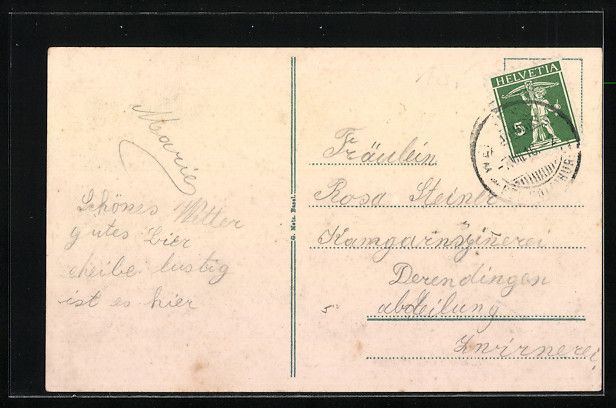 Marie
Schönes Wetter
gutes Bier
cheibe lustig
ist es hier
G. Metz, Basel.
HELVETIA
5
Fräulein
Rosa Steiner
Kamgarnspinerei
Derendingen
abdeilung
Zwirnerei
5